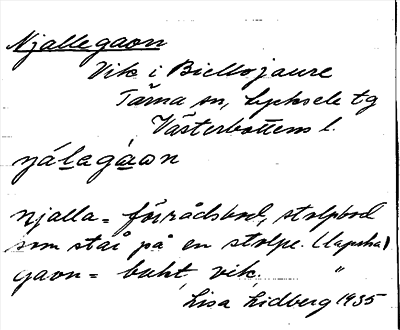 Njallegaon
Vik i Biellojaure
Tärna sn, Lycksele tg
Västerbottens l.
ŋálagáɷn
njalla = förrådsbod, stolpbod
som står på en stolpe. (lapska)
gaon = bukt, vik. "
Lisa Lidberg 1935